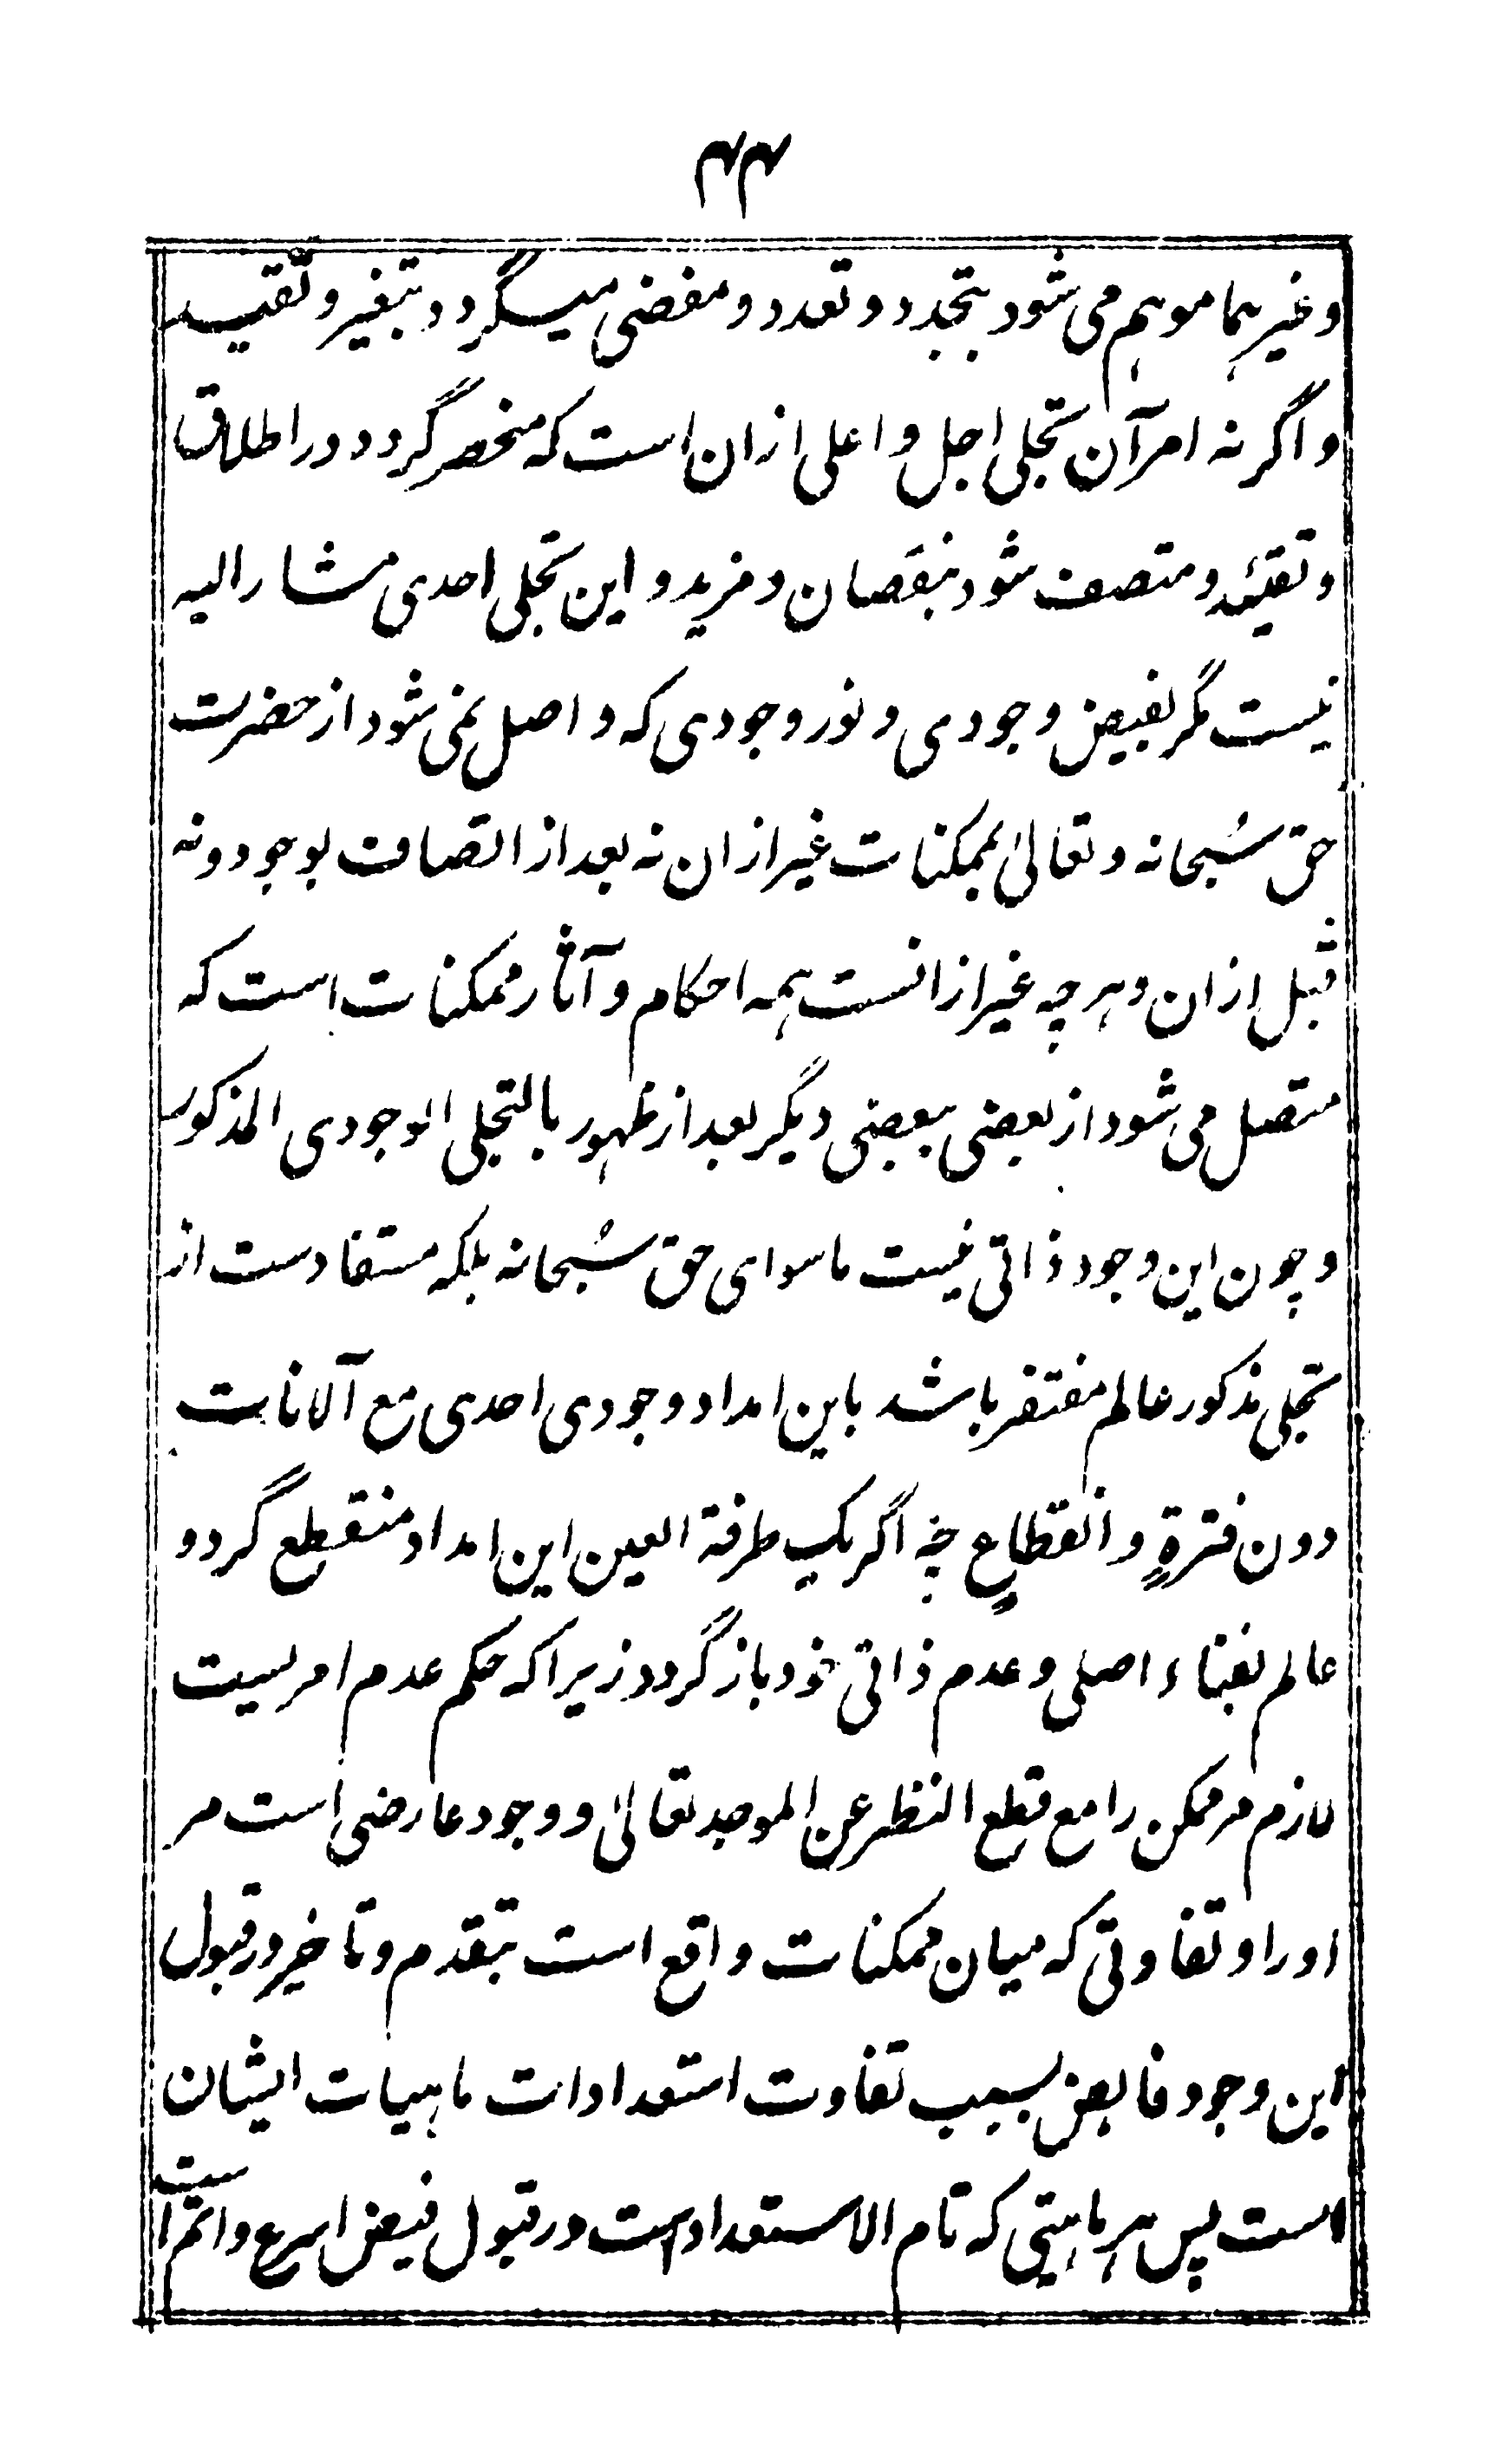 ۴۴
وغیرهما موهم می شود بتجدد و تعدد و مفضی میگردد بتغیر و تقید
و اگر نه امر آن تجلی اجل و اعلی ازان است که منحصر گردد در اطلاق
و تقید و متصف شود بنقصان و مزید و این تجلی احدی مشار الیه
نیست مگر بفیض وجودی و نور وجودی که واصل نمی شود از حضرت
حق سُبحانه و تعالیٰ بممکنات غیر ازان نه بعد از اتصاف بوجود و نه
قبل ازان و هرچه غیر ازانست همه احکام و آثار ممکنات است که
متصل می شود از بعضی ببعضی دیگر بعد از ظهور بالتجلی الوجودی المذکور
و چون این وجود ذاتی نیست ماسوای حق سُبحانه بلکه مستفادست از
تجلی مذکور عالم مفتقر باشد باین امداد وجودی احدی مع آلانات
دون فترةٍ و انقطاعٍ چه اگر یک طرفة العین این امداد منقطع گردد
عالم بفناء اصلی و عدم ذاتی خود باز گردد زیرا که حکم عدم امریست
لازم مر ممکن را مع قطع النظر عن الموجد تعالیٰ و وجود عارضی است مر
اورا و تفاوتی که میان ممکنات واقع است بتقدم و تاخیر در قبول
این وجود فایض بسبب تفاوت استعدادات ماهیات ایشان
است پس هر ماهیتی که تام الاستعداد است در قبول فیض اسرع و اتم است